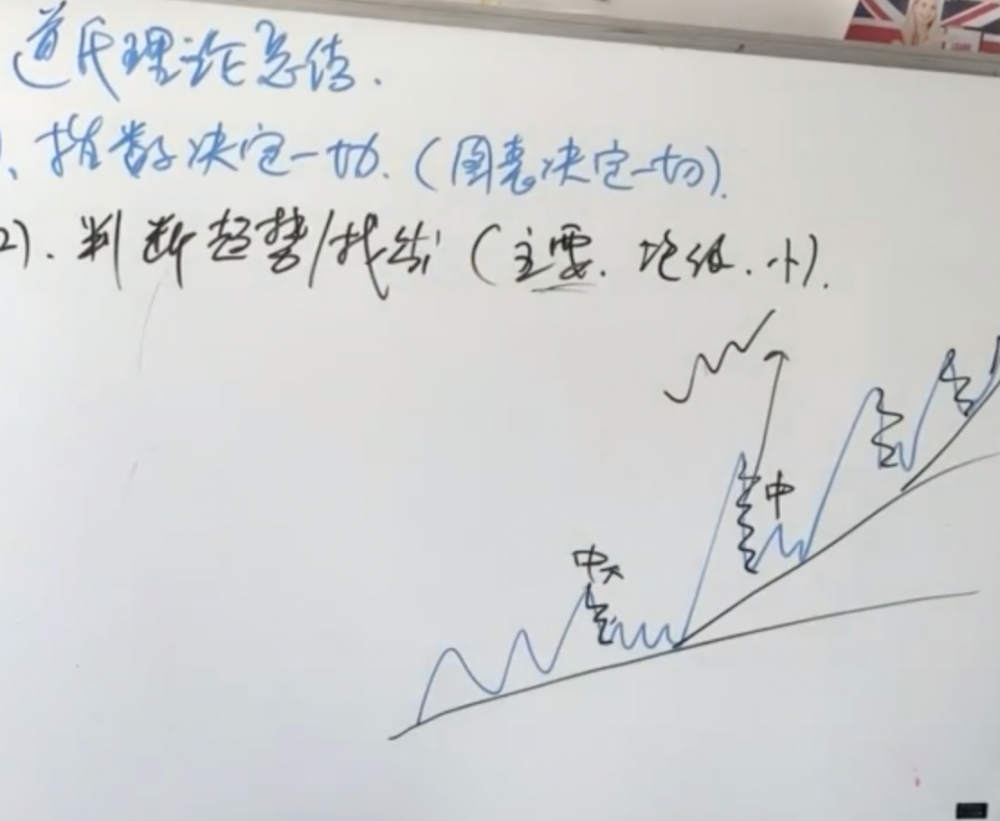 道氏理论总结.
1、指数决定一切.(图表决定一切).
2).判断趋势/找出(主要.次级.小).
中
中